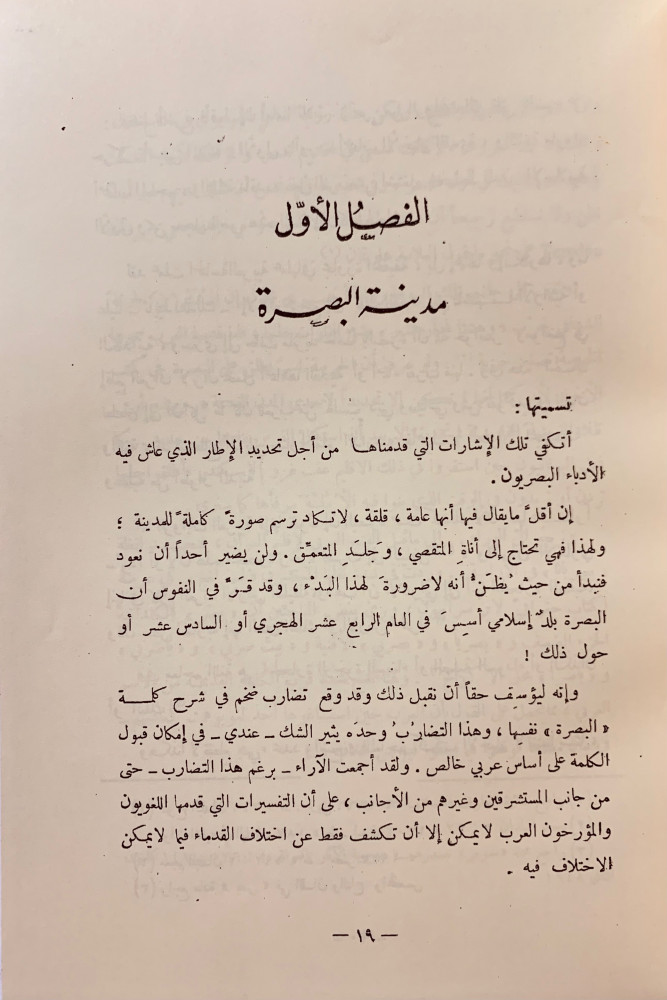 الفصل الأوّل
مدينة البصرة
تسميتها :
أتكفي تلك الإشارات التي قدمناها من أجل تحديد الإطار الذي عاش فيه
الأدباء البصريون .
إن أقلّ مايقال فيها أنها عامة ، قلقة ، لاتكاد ترسم صورةً كاملةً للمدينة ؛
ولهذا فهي تحتاج إلى أناةِ المتقصي ، وَجلَدِ المتعمِّق . ولن يضير أحداً أن نعود
فنبدأ من حيث يُظَنُّ أنه لاضرورةَ لهذا البَدْء ، وقد قرَّ في النفوس أن
البصرة بلدٌ إسلامي أُسِسَ في العام الرابع عشر الهجري أو السادس عشر أو
حول ذلك !
وإنه ليؤسِف حقاً أن نقبل ذلك وقد وقع تضارب ضخم في شرح كلمة
« البصرة » نفسِها ، وهذا التضاربُ وحدَه يثير الشك ـ عندي ـ في إمكان قبول
الكلمة على أساس عربي خالص . ولقد أجمعت الآراء ـ برغم هذا التضارب ـ حتى
من جانب المستشرقين وغيرهم من الأجانب ، على أن التفسيرات التي قدمها اللغويون
والمؤرخون العرب لايمكن إلا أن تكشف فقط عن اختلاف القدماء فيما لايمكن
الاختلاف فيه .
— ١٩ —